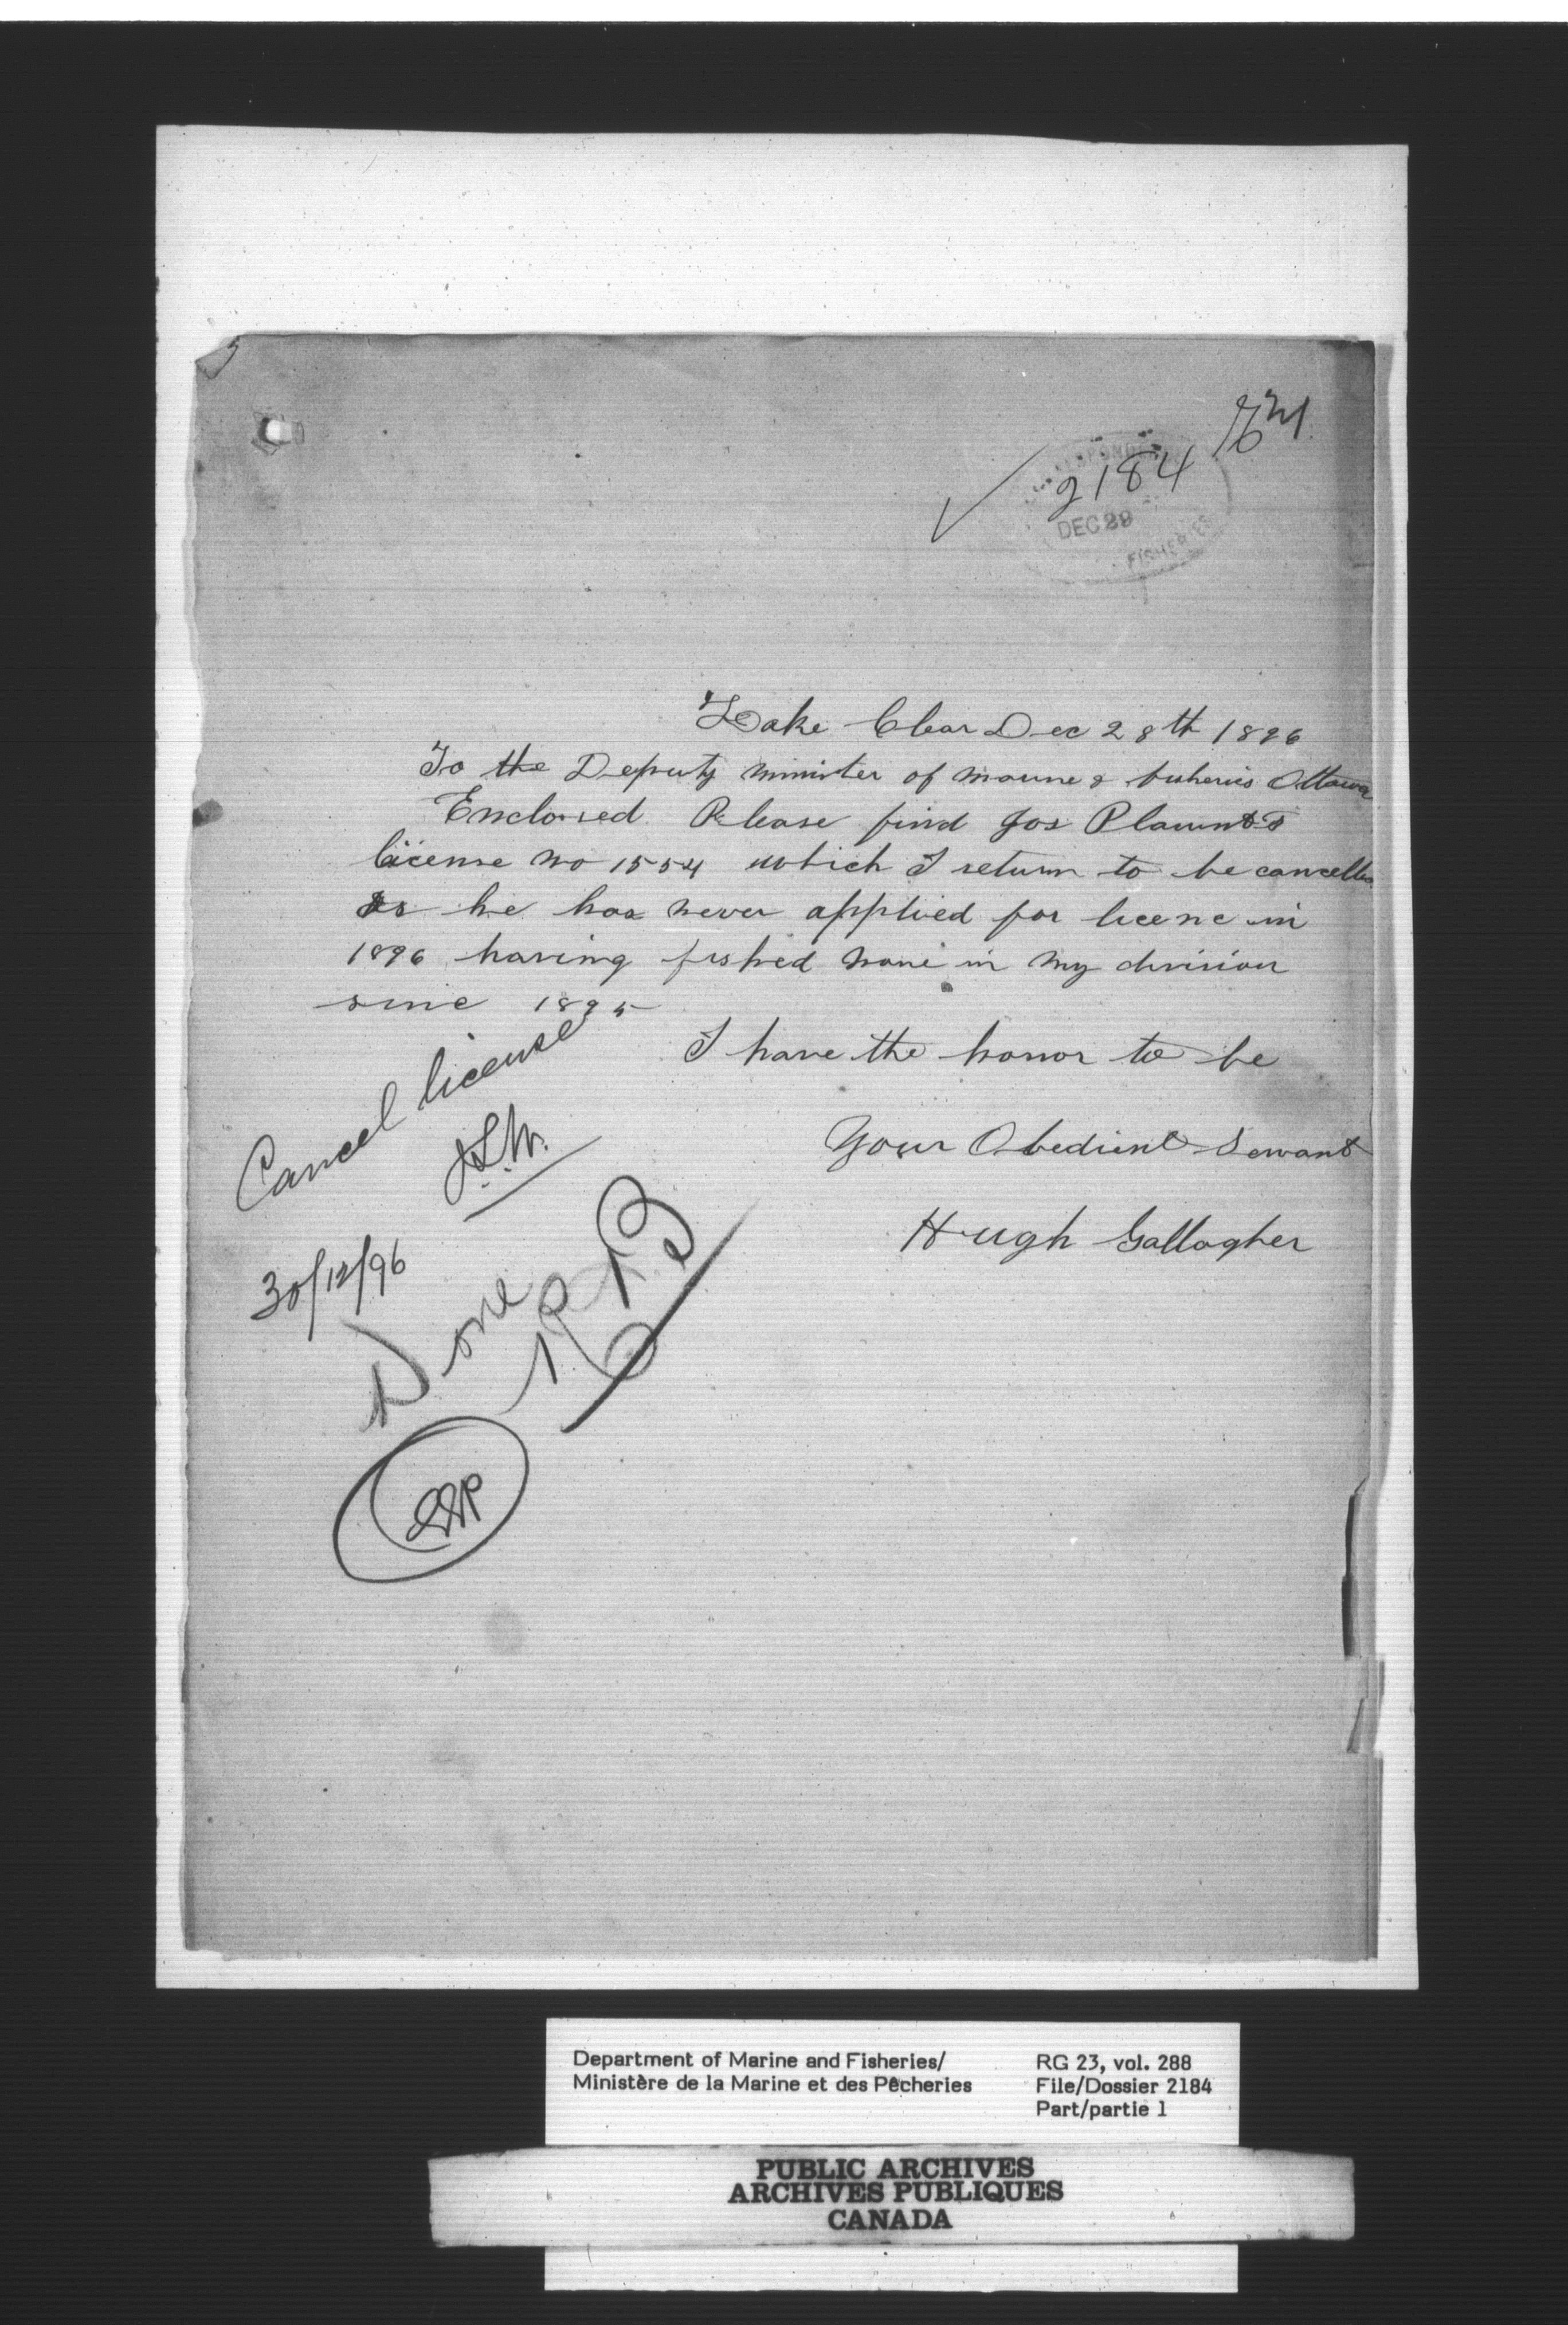 2184
DEC 29
FISHERIES
Lake Clear Dec 28th 1896
To the Deputy minister of marine & fisheries Ottawa
Enclosed Please find Jos Plaunts
license no 1554 which I return to be cancelled
As he has never applied for licenc in
1896 having fished none in my division
sinc 1895
I have the honor to be
Your Obedient Servant
Hugh Gallagher
Cancel license
30/12/96
Done
Department of Marine and Fisheries/
Ministère de la Marine et des Pêcheries
RG 23, vol. 288
File/Dossier 2184
Part/partie 1
PUBLIC ARCHIVES
ARCHIVES PUBLIQUES
CANADA